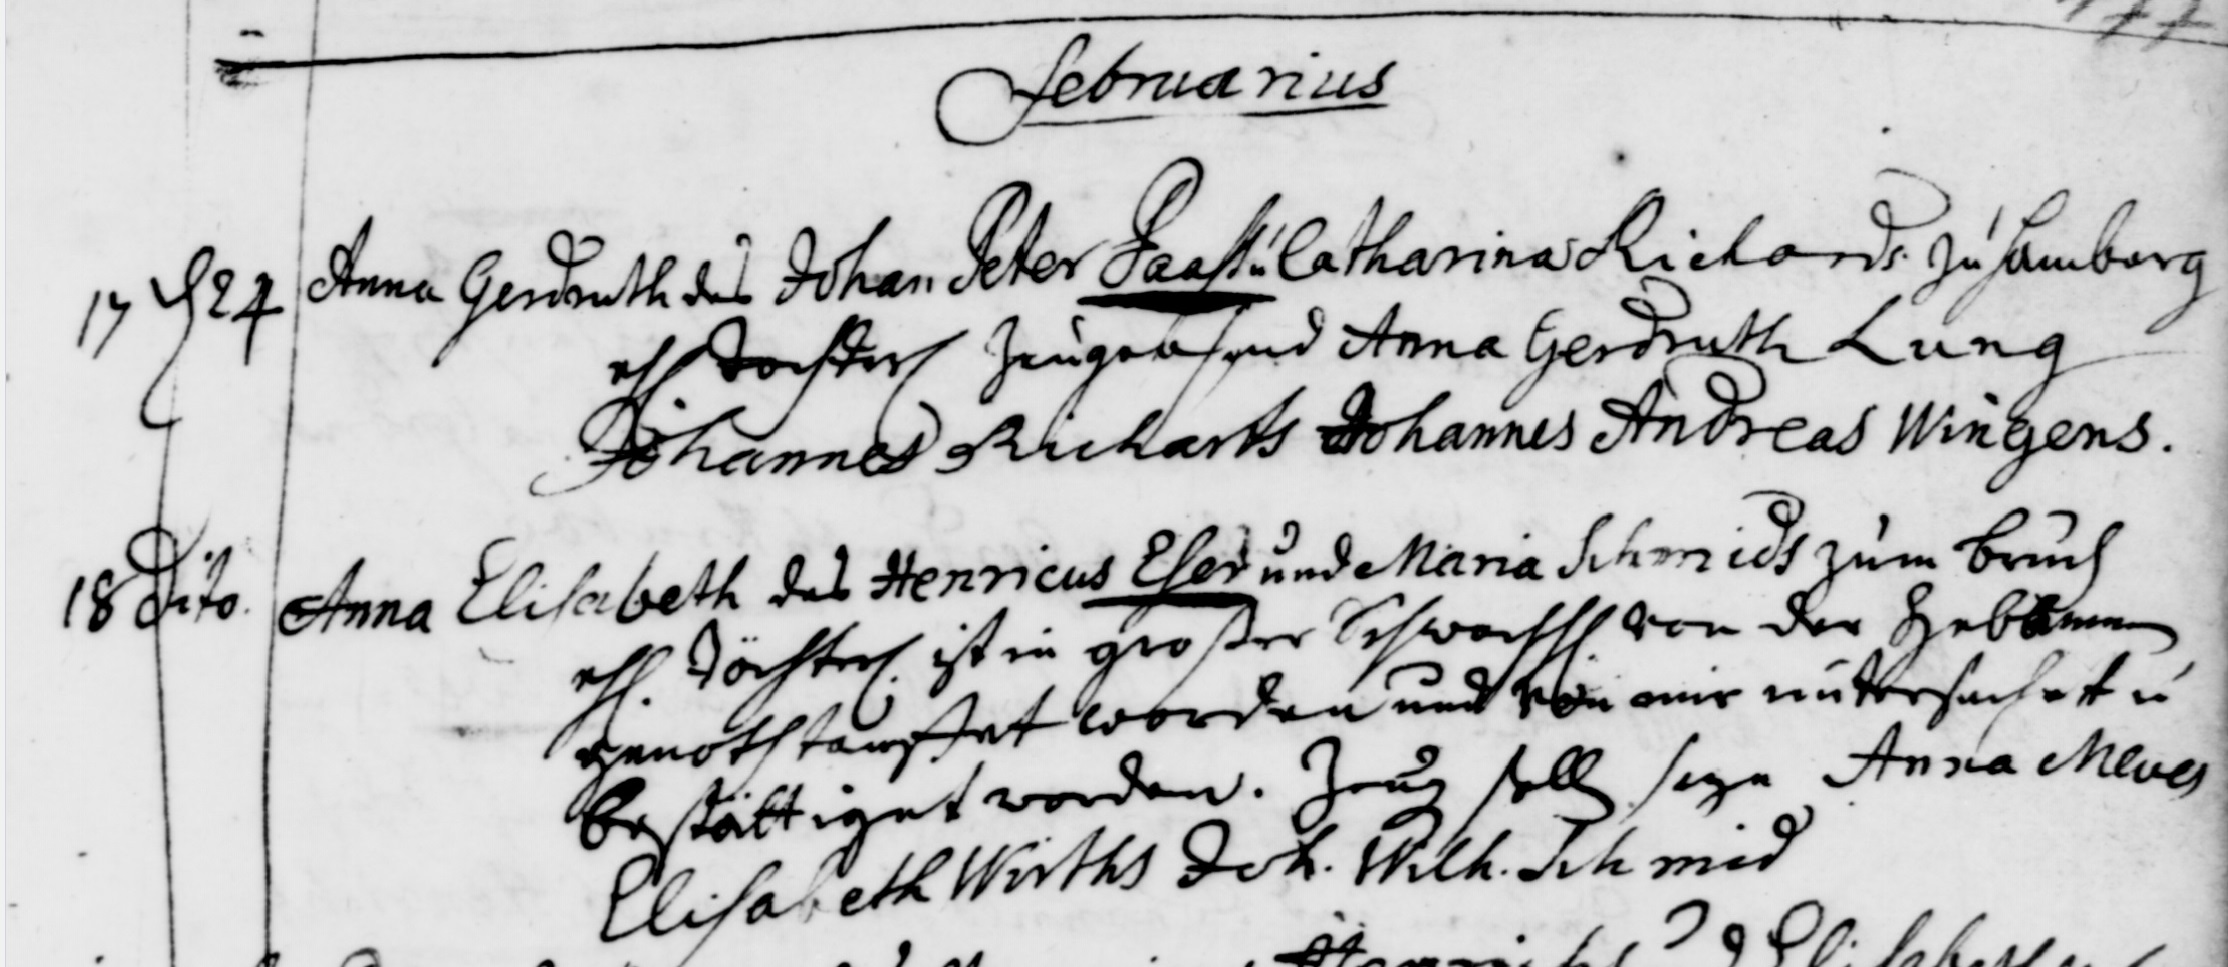 Februarius
17 24 Anna Gerdruth des Johan Peter Faast u Catharina Richards. zu hamberg
ehl Tochterl Zeugen sind Anna Gerdruth Lung
Johannes Richarts Johannes Andreas Wingens.
18 Dito. Anna Elisabeth des Henricus Eser und Maria Schmids zum bruch
ehl. Töchterl. ist in großer Schwachh von der Hebammen
genothtauffet worden und von mir untersuchet u
bestättiget worden. Zeug soll seyn Anna Meves
Elisabeth Wirths Joh. Wilh. Schmid
Elisabeth